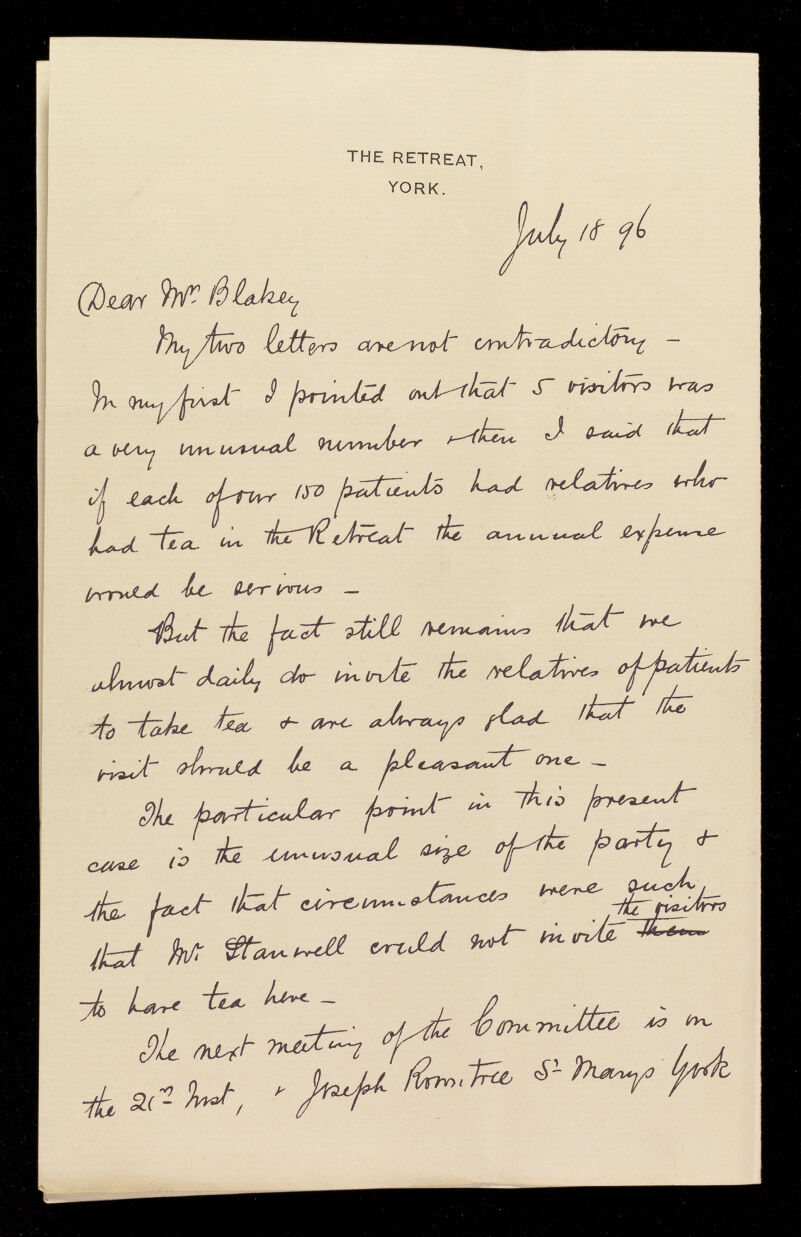 THE RETREAT,
YORK.
July 18 96
Dear Mr. Blakey
My two letters are not contradictory –
In my first I pointed out that 5 visitors was
a very unusual number & then I said that
if each of our 150 patients had relatives who
had tea in the Retreat the annual expense
would be serious –
But the fact still remains that we
almost daily do invite the relatives of patients
to take tea & are always glad that the
visit should be a pleasant one –
The particular point in this present
case is the unusual size of the party &
the fact that circumstances were such
the visitors
that Mr. Stanwell could not invite them
to have tea here –
The next meeting of the Committee is on
the 21st Inst, & Joseph Rowntree St Marys York